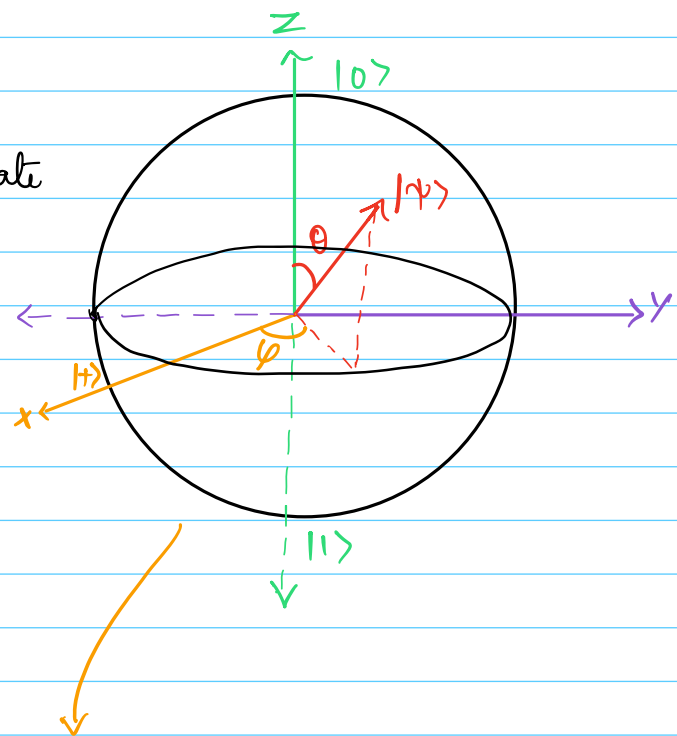 Z
|0⟩
ate
|ψ⟩
θ
Y
φ
|+⟩
x
|1⟩